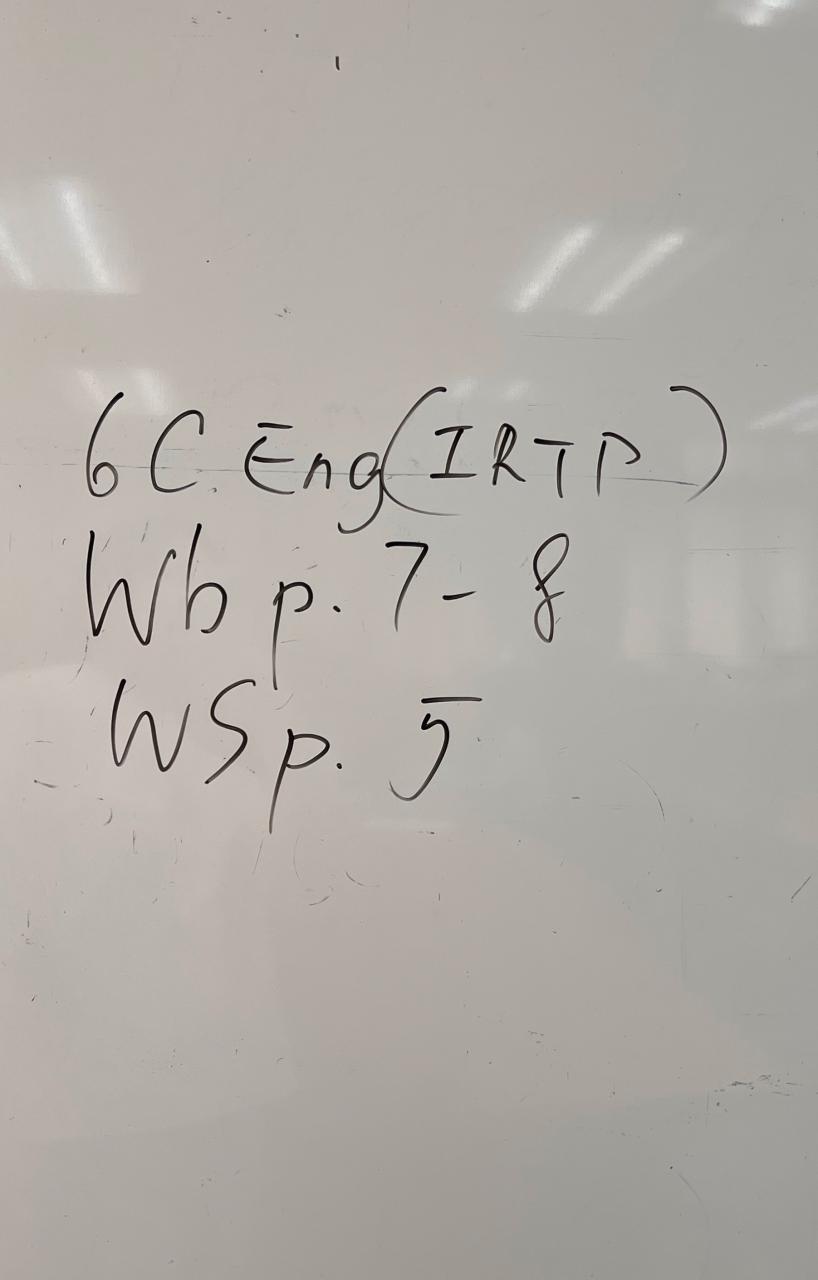 6C Eng(IRTP)
Wb p. 7-8
WS p. 5